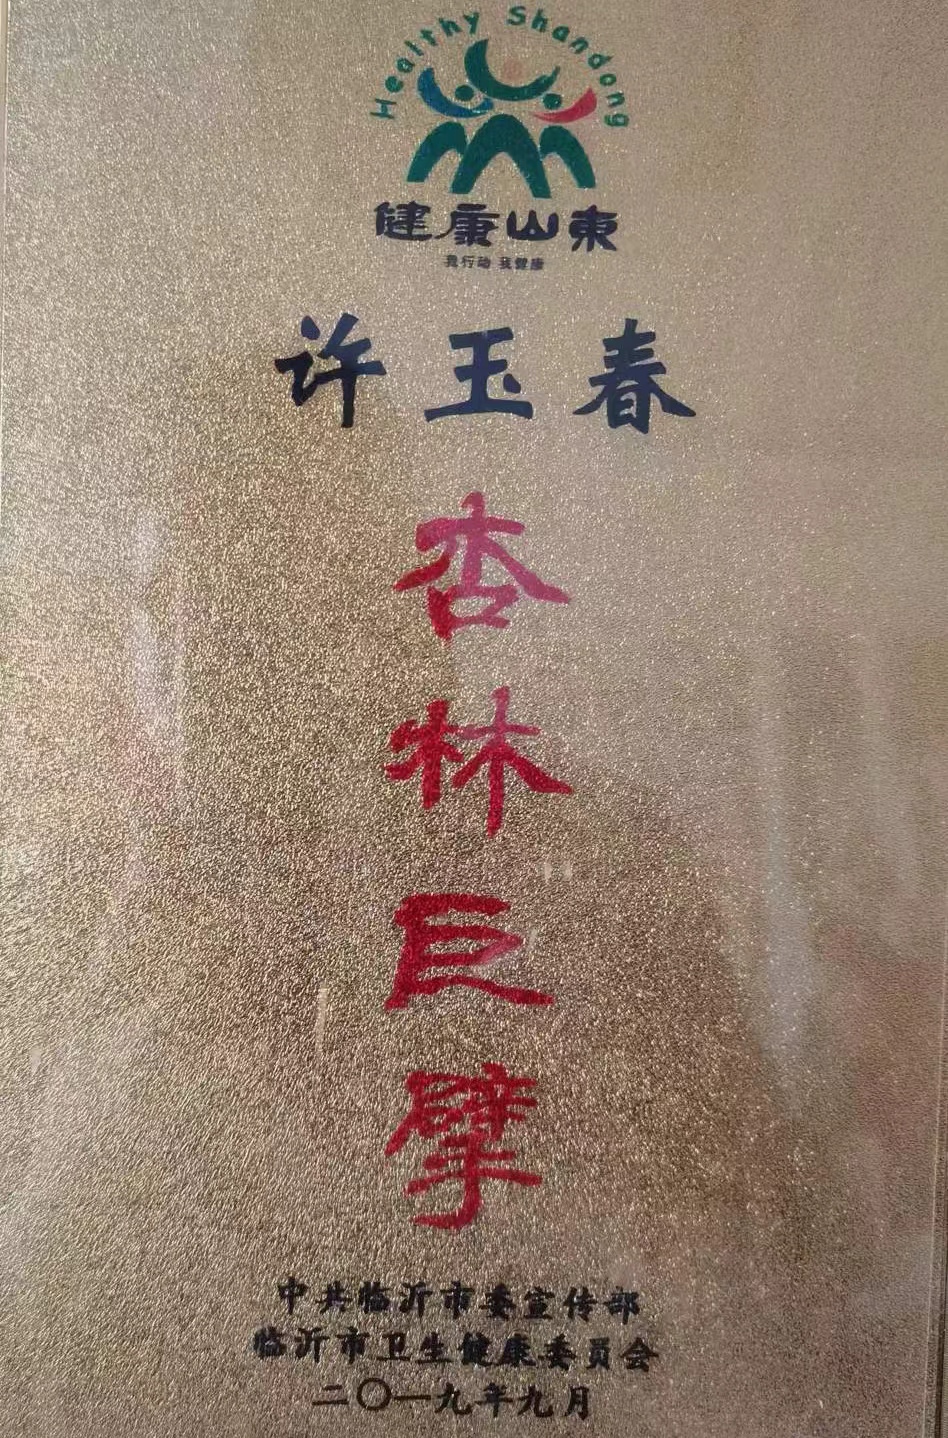 Healthy Shandong
健康山東
我行动 我健康
许玉春
杏林巨擘
中共临沂市委宣传部
临沂市卫生健康委员会
二〇一九年九月